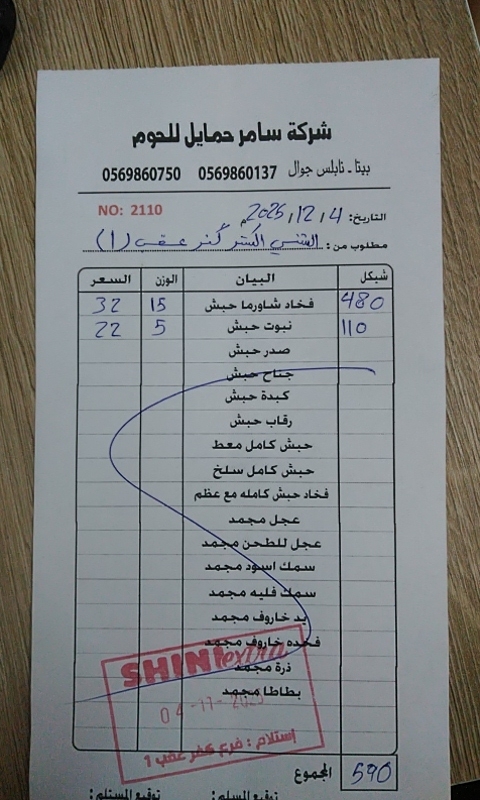 شركة سامر حمايل للحوم
بيتا - نابلس جوال 0569860137 0569860750
NO: 2110
التاريخ: 4 / 12 / 2025م
مطلوب من: الشني اكسترا كفر عقب (1)
شيكل البيان الوزن السعر
480 فخاد شاورما حبش 15 32
110 نبوت حبش 5 22
صدر حبش
جناح حبش
كبدة حبش
رقاب حبش
حبش كامل معط
حبش كامل سلخ
فخاد حبش كامله مع عظم
عجل مجمد
عجل للطحن مجمد
سمك اسود مجمد
سمك فليه مجمد
يد خاروف مجمد
فخده خاروف مجمد
ذرة مجمد
بطاطا مجمد
SHINI extra
04-11-2025
استلام : فرع كفر عقب 1
المجموع 590
توقيع المسلم : توقيع المستلم :